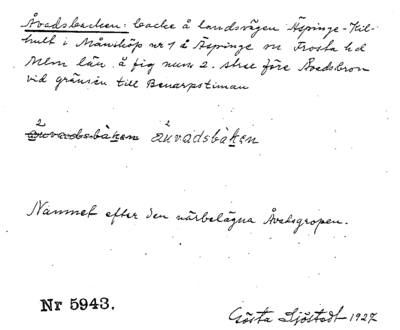 Åvadsbacken: backe å landsvägen Äspinge-Kil-
hult i Månsköp nr 1 å Äspinge sn Frosta hd
Mlm län å fig num 2. strax före Åvadsbron
vid gränsen till Benarpstiman
2
auvadsbàken 2
auvadsbàken
Namnet efter den närbelägna Åvadsgropen.
Nr 5943.
Gösta Sjöstedt 1927